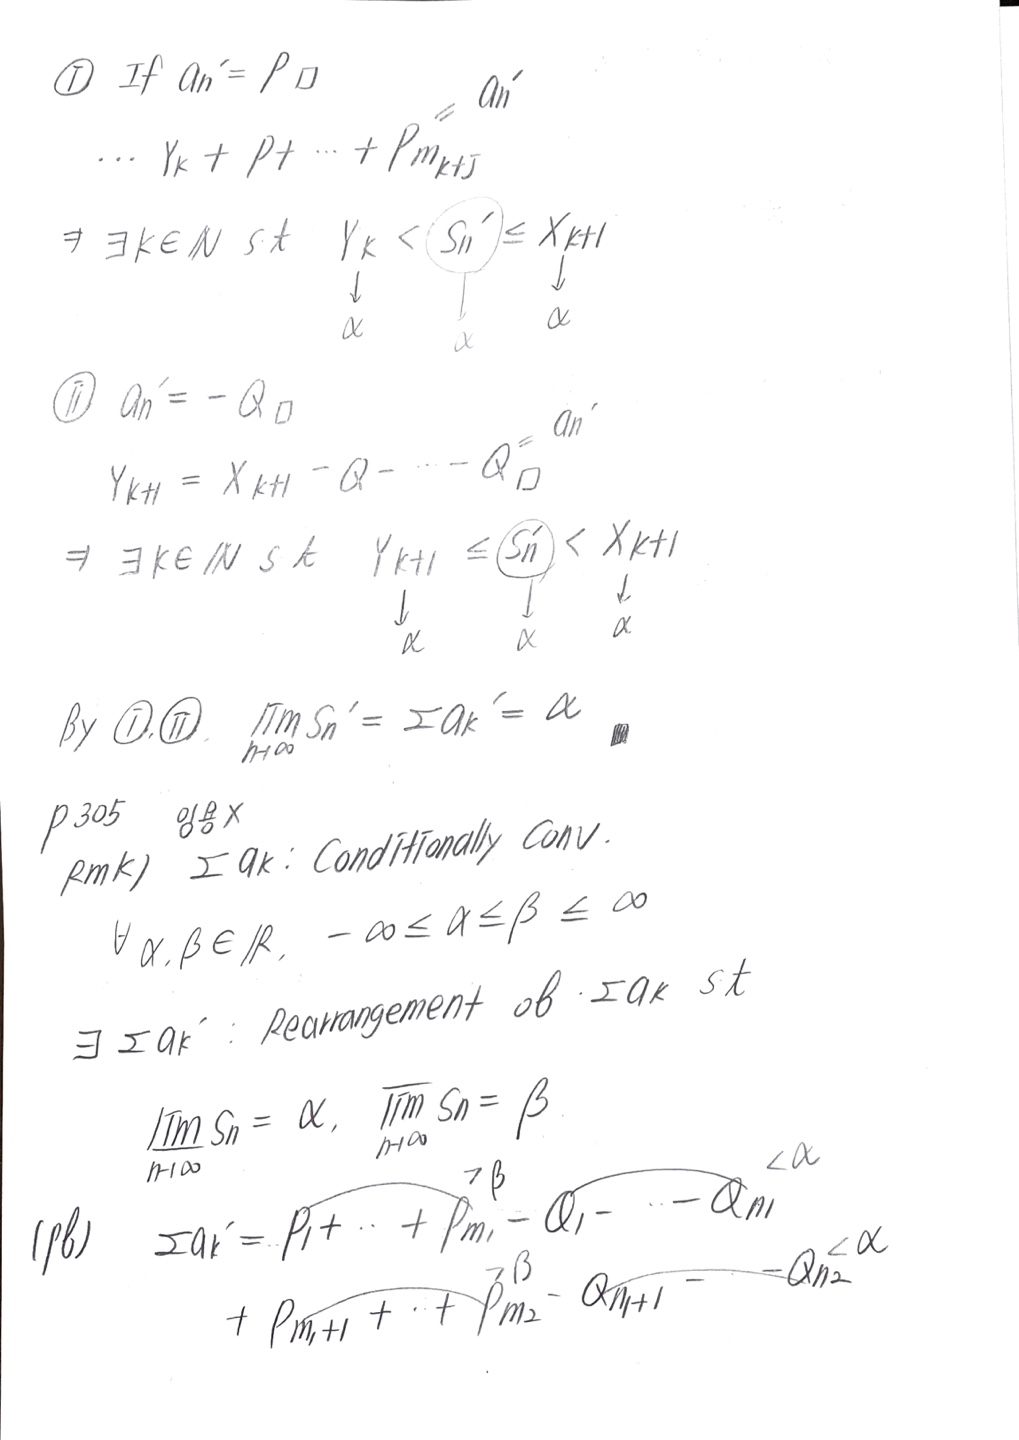 Ⓘ If an′ = P□
... Yk + P + ... + Pmk+j = an′
⇒ ∃k∈N st Yk < Sn′ ≤ Xk+1
↓ ↓ ↓
α α α
Ⓘⓘ an′ = -Q□
Yk+1 = Xk+1 - Q - ... - Q□ = an′
⇒ ∃k∈N st Yk+1 ≤ Sn′ < Xk+1
↓ ↓ ↓
α α α
By Ⓘ, Ⓘⓘ. lim n→∞ Sn′ = Σak′ = α ■
p305 임용X
Rmk) Σak : Conditionally Conv.
∀α, β∈R, -∞ ≤ α ≤ β ≤ ∞
∃Σak′ : Rearrangement of Σak st
l̲i̲m̲ n→∞ Sn = α, l̅i̅m̅ n→∞ Sn = β
(pf) Σak′ = P1 + ... + Pm1 >β - Q1 - ... - Qn1 <α
+ Pm1+1 + ... + Pm2 >β - Qn1+1 - - Qn2 <α